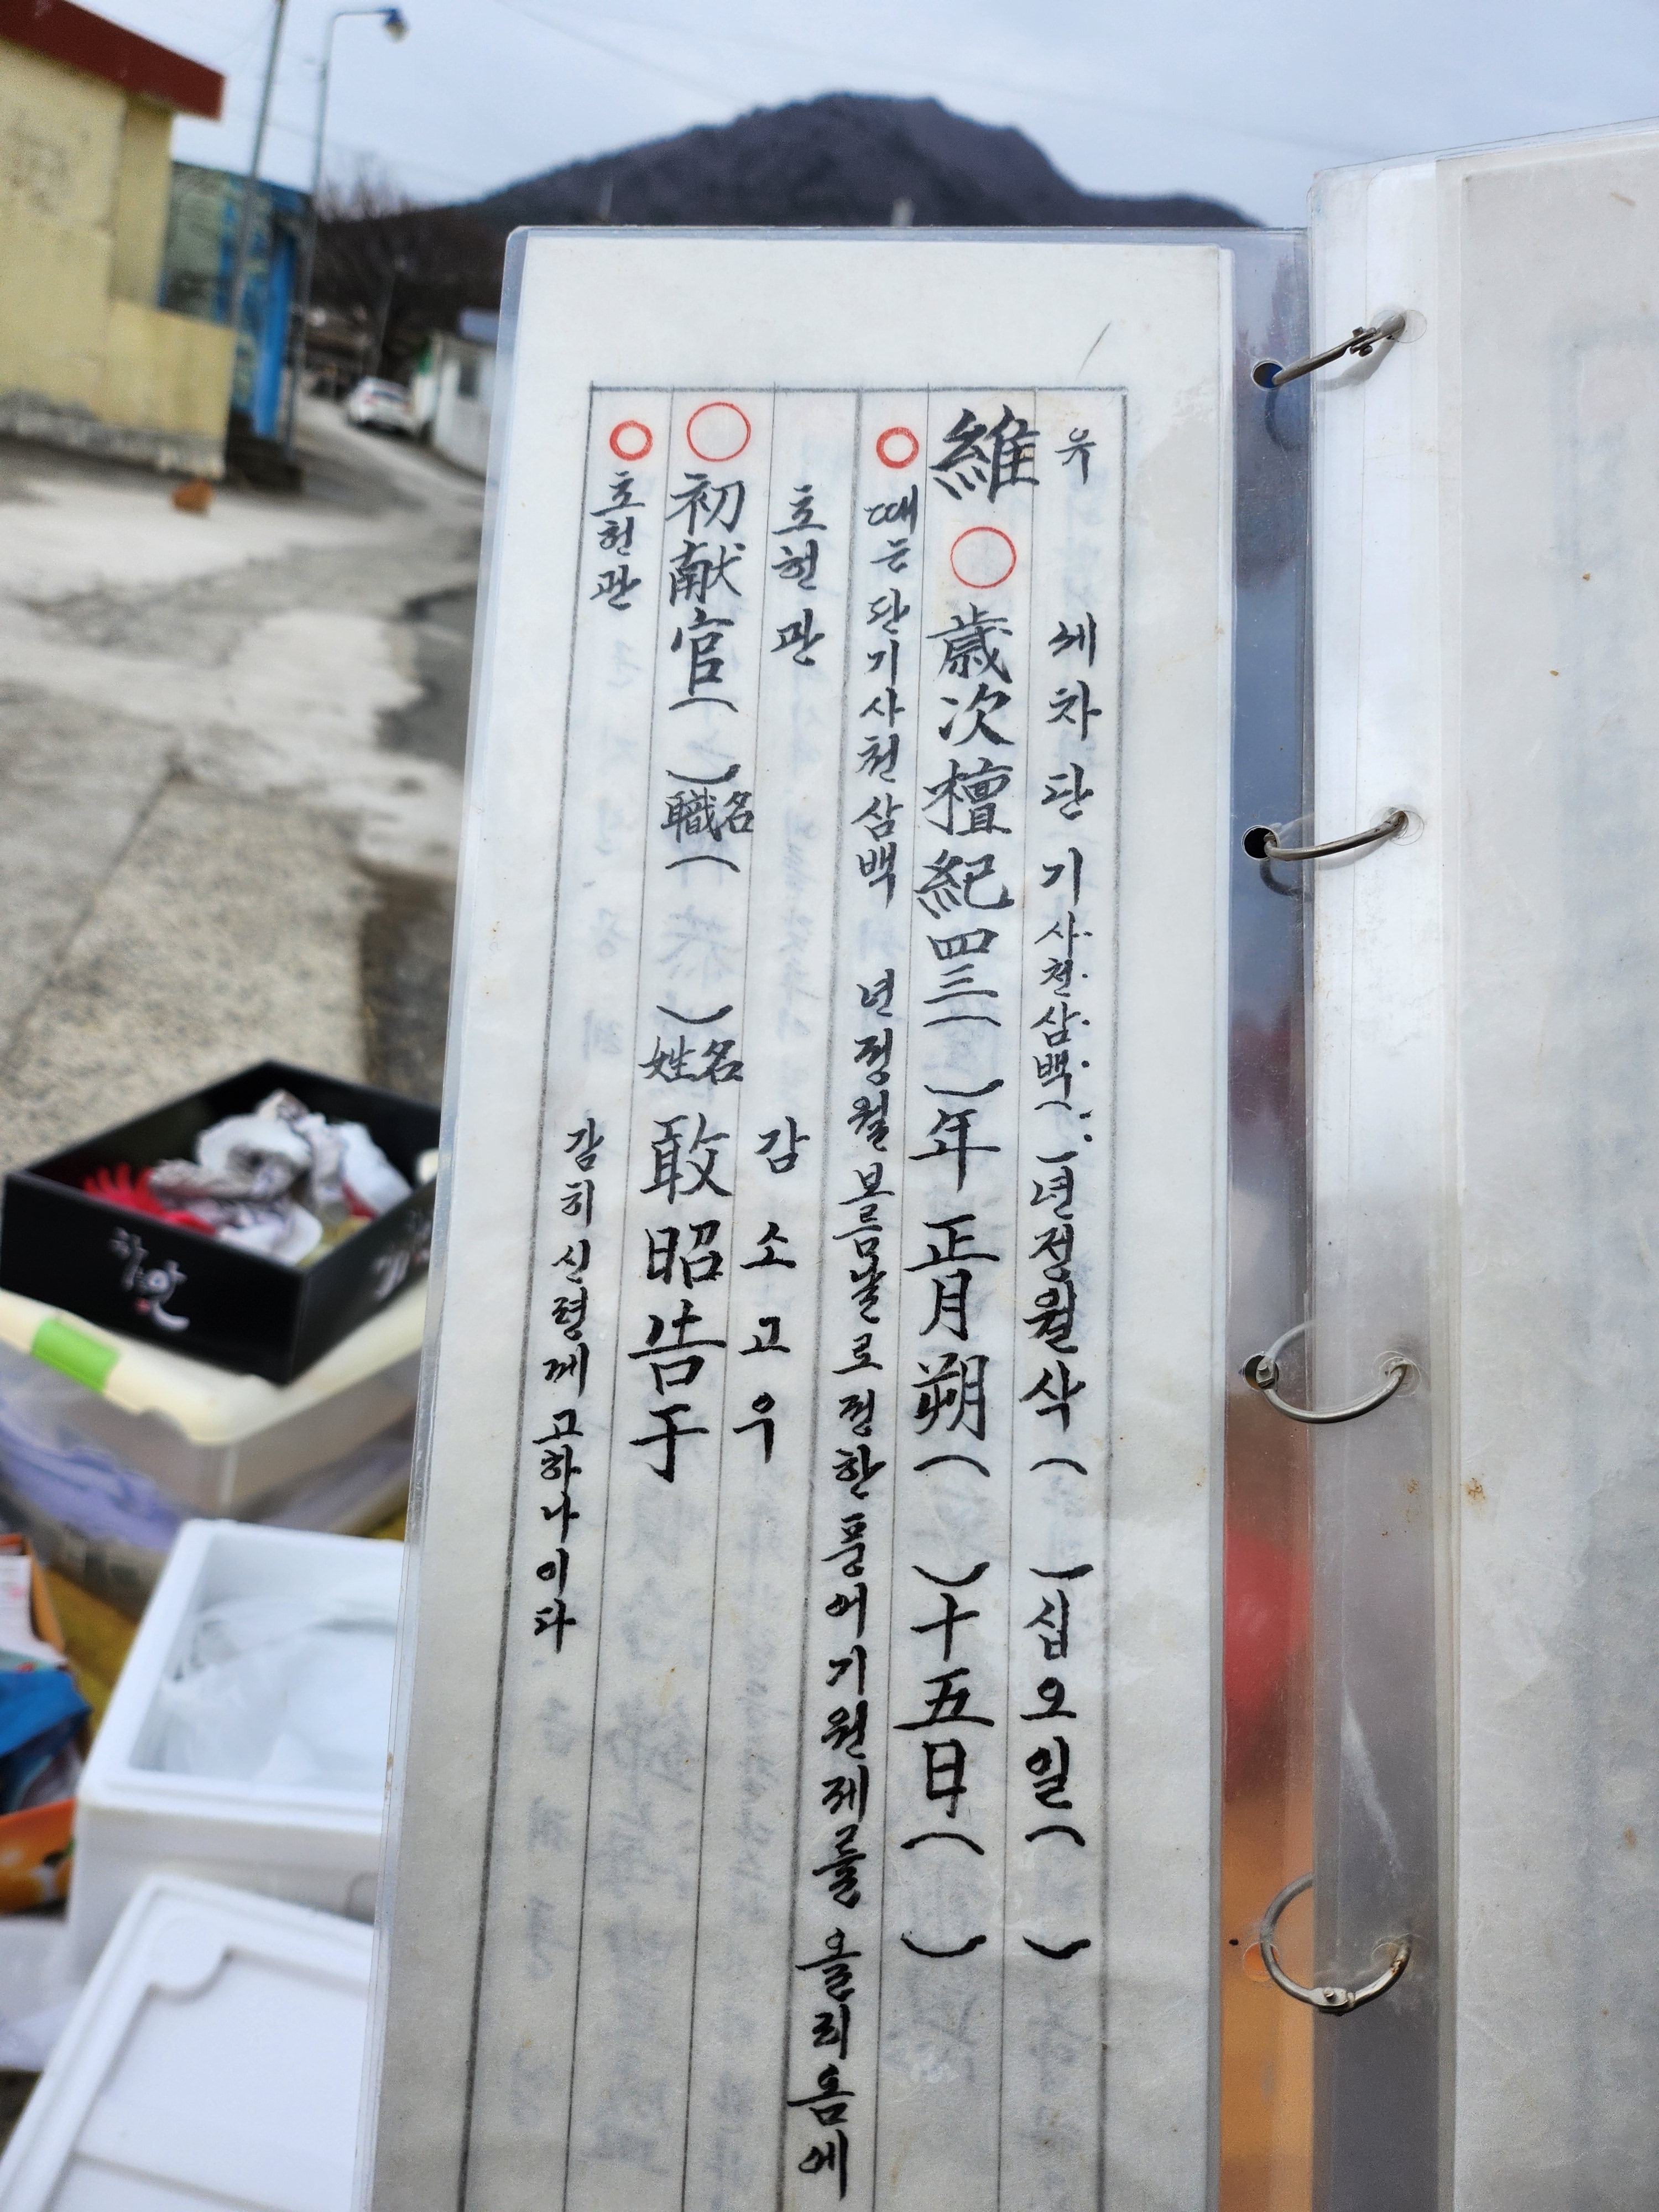 유 세차 단기사천삼백( )년정월삭( )십오일( )
維 ○ 歲次檀紀四三( )年正月朔( )十五日( )
○ 때는 단기사천삼백 년 정월 보름날로 정한 풍어기원제를 올리옴에
초헌관 감소고우
○ 初献官( )職名( )姓名 敢昭告于
○ 초헌관 감히 신령께 고하나이다